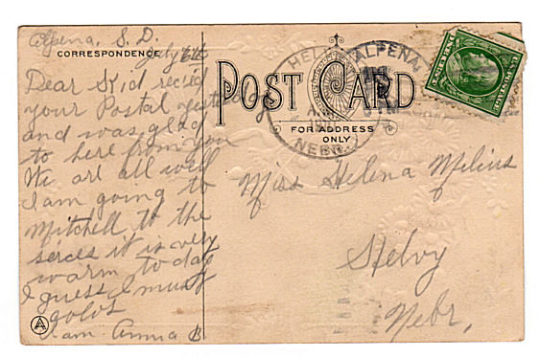 Alpena, S. D.
CORRESPONDENCE
July
Dear Kid recied
your Postal yesterday
and was glad
to here from you
We are all well
I am going to
Mitchell to the
sirces it is very
warm to day
I guess I must
golos
I am Anna B
POST CARD
FOR ADDRESS
ONLY
ALPENA
NEBR
Miss Helena Melius
Helvy
Nebr,